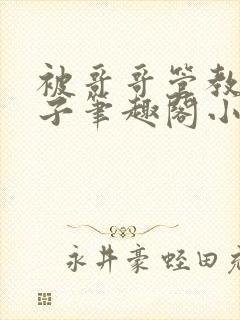 被哥哥管教
子筆趣閣小
永井豪蛭田充